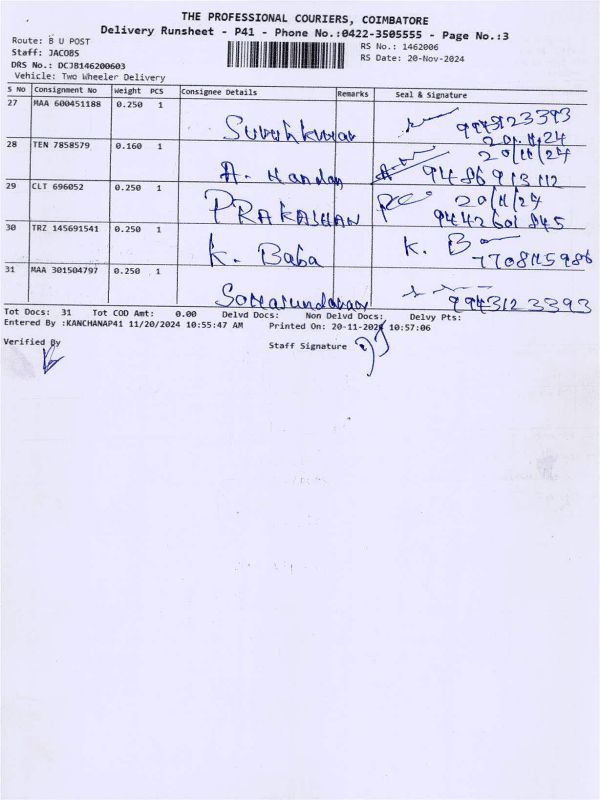 THE PROFESSIONAL COURIERS, COIMBATORE
Delivery Runsheet - P41 - Phone No.:0422-3505555 - Page No.:3
Route: B U POST
Staff: JACOBS
DRS No.: DCJB146200603
Vehicle: Two Wheeler Delivery
RS No.: 1462006
RS Date: 20-Nov-2024
S No Consignment No Weight PCS Consignee Details Remarks Seal & Signature
27 MAA 600451188 0.250 1 9943123393
20.11.24
28 TEN 7858579 0.160 1 A. Nandan 20/11/24
29 CLT 696052 0.250 1 PRAKASHAN 20/11/24
9442601845
30 TRZ 145691541 0.250 1 K. Baba K. Ba
31 MAA 301504797 0.250 1 Somasundaram 9943123393
Tot Docs: 31 Tot COD Amt: 0.00 Delvd Docs: Non Delvd Docs: Delvy Pts:
Entered By :KANCHANAP41 11/20/2024 10:55:47 AM Printed On: 20-11-2024 10:57:06
Verified By Staff Signature